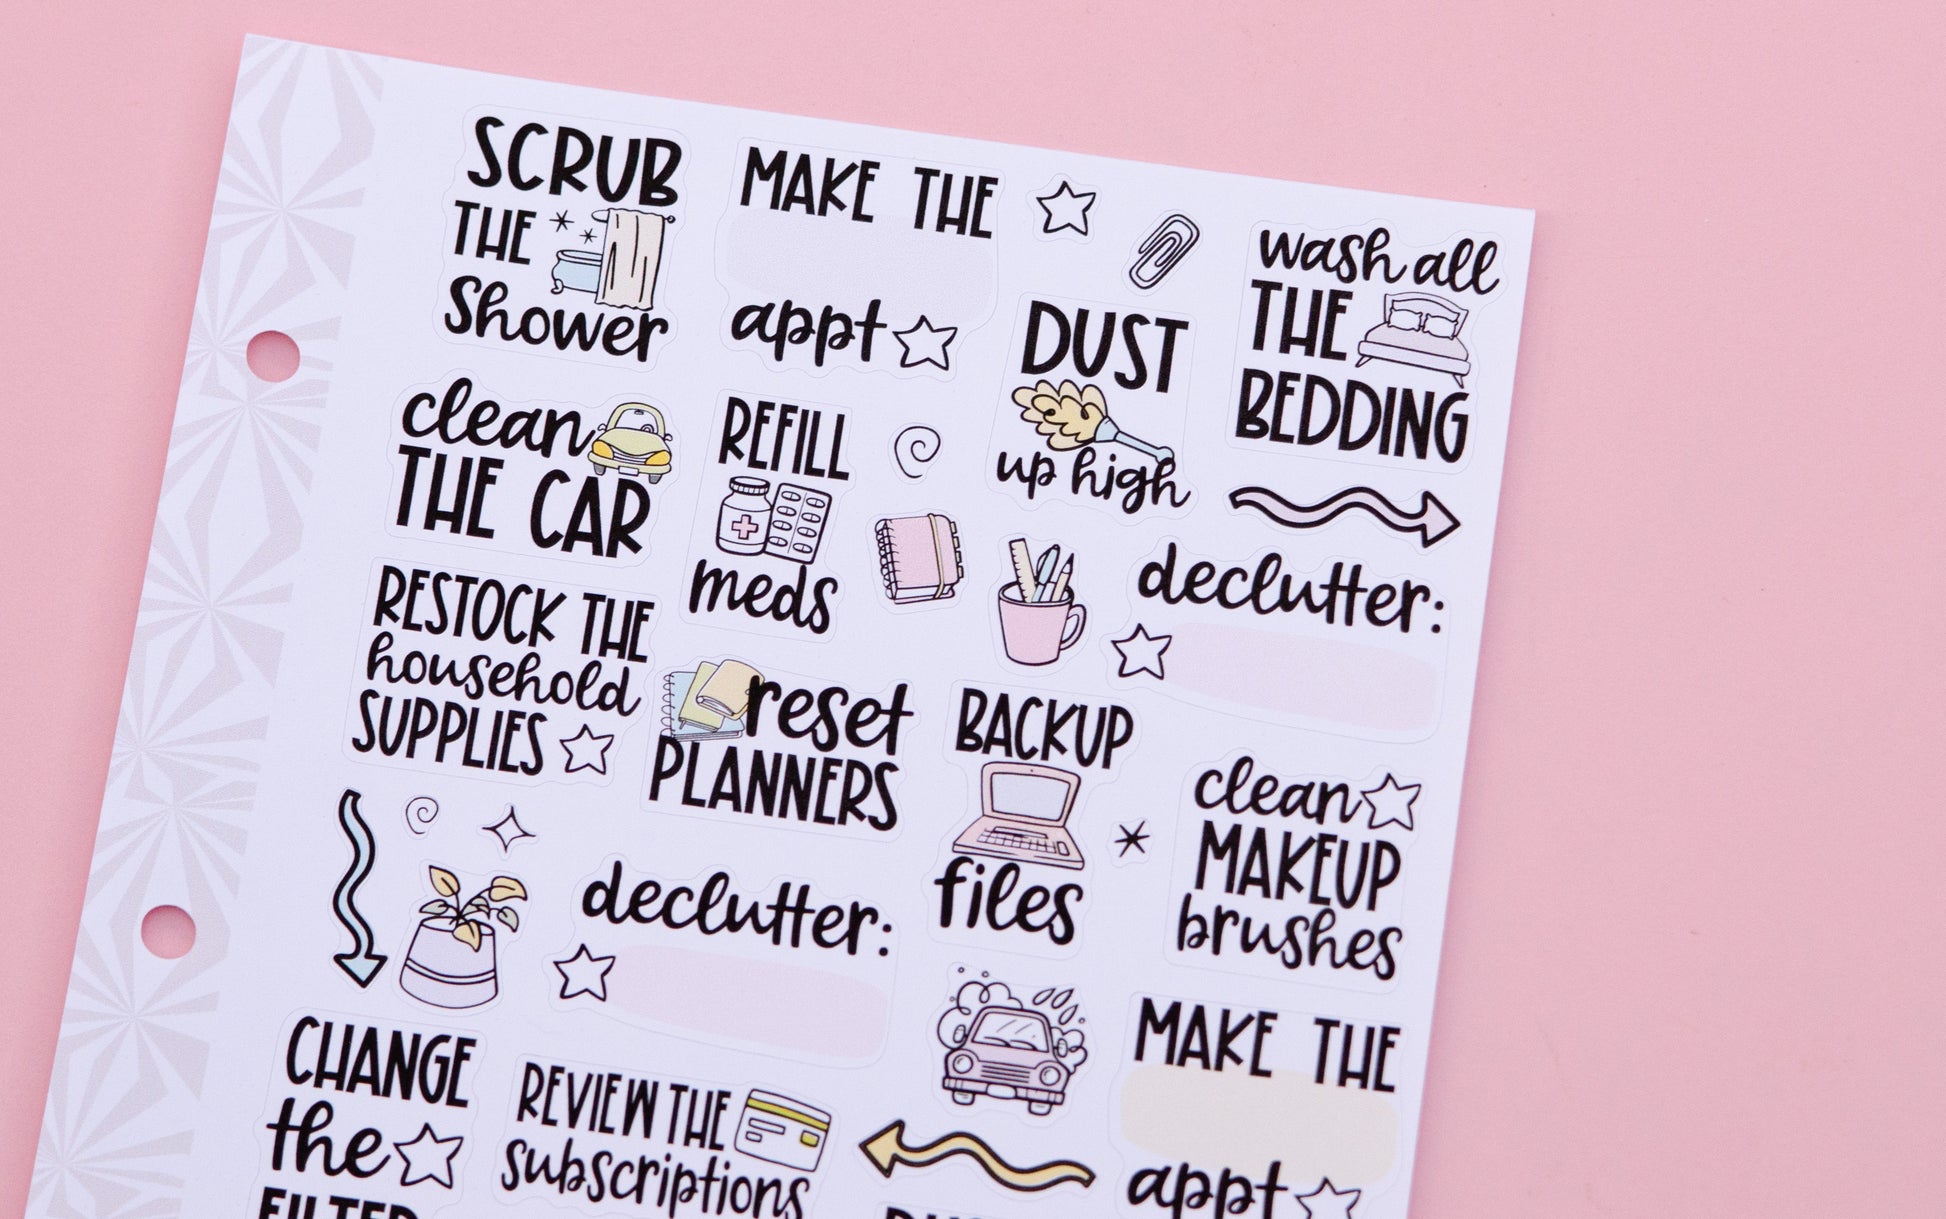 SCRUB
THE
Shower
MAKE THE
appt
wash all
THE
BEDDING
DUST
up high
clean
THE CAR
REFILL
meds
declutter:
RESTOCK THE
household
SUPPLIES
reset
PLANNERS
BACKUP
files
clean
MAKEUP
brushes
declutter:
MAKE THE
appt
CHANGE
the
FILTER
REVIEW THE
subscriptions